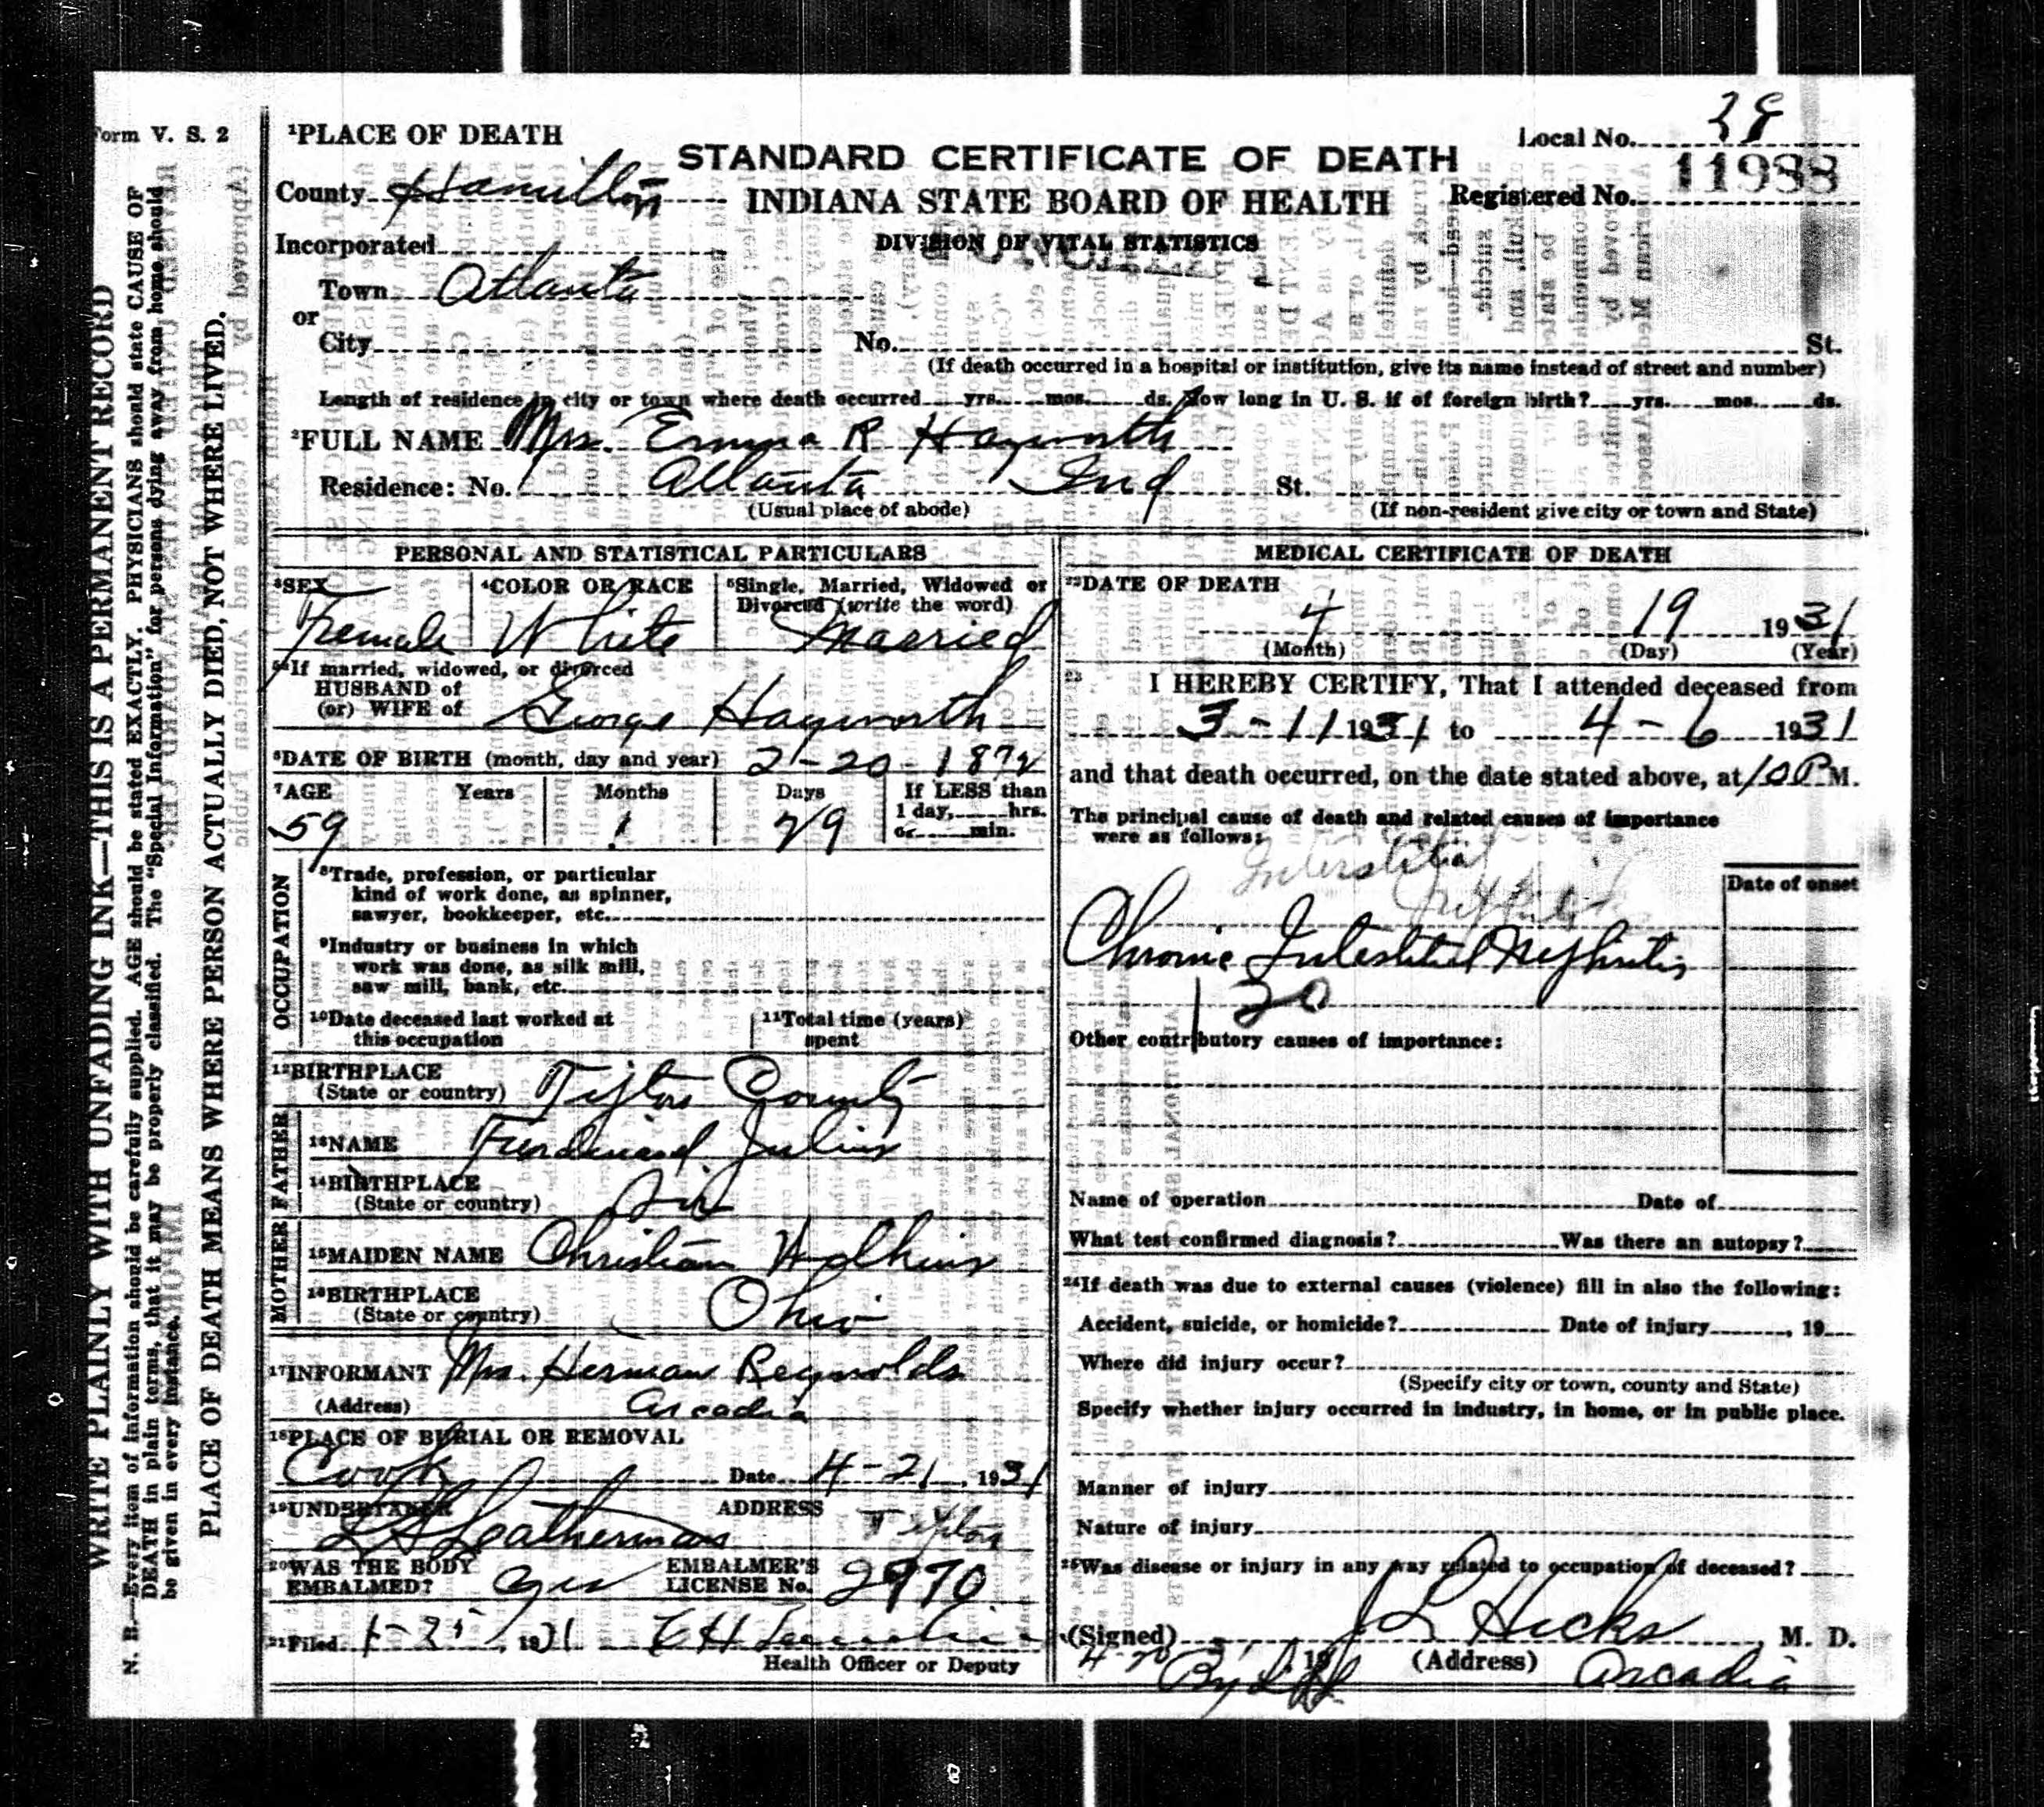 Form V. S. 2
WRITE PLAINLY WITH UNFADING INK—THIS IS A PERMANENT RECORD
N. B.—Every item of information should be carefully supplied. AGE should be stated EXACTLY. PHYSICIANS should state CAUSE OF
DEATH in plain terms, that it may be properly classified. The "Special Information" for persons dying away from home should
be given in every instance.
PLACE OF DEATH MEANS WHERE PERSON ACTUALLY DIED, NOT WHERE LIVED.
Local No. 28
¹PLACE OF DEATH
STANDARD CERTIFICATE OF DEATH
County Hamilton
INDIANA STATE BOARD OF HEALTH
Registered No. 11988
Incorporated
DIVISION OF VITAL STATISTICS
Town Atlanta
or
City No. St.
(If death occurred in a hospital or institution, give its name instead of street and number)
Length of residence in city or town where death occurred yrs. mos. ds. How long in U. S. if of foreign birth? yrs. mos. ds.
²FULL NAME Mrs. Emma R Hayworth
Residence: No. Atlanta Ind St.
(Usual place of abode) (If non-resident give city or town and State)
PERSONAL AND STATISTICAL PARTICULARS
³SEX ⁴COLOR OR RACE ⁵Single, Married, Widowed or
Divorced (write the word)
Female White Married
⁵ᵃIf married, widowed, or divorced
HUSBAND of
(or) WIFE of George Hayworth
⁶DATE OF BIRTH (month, day and year) 2-20-1872
⁷AGE Years Months Days If LESS than
1 day, hrs.
or min.
59 1 29
OCCUPATION
⁸Trade, profession, or particular
kind of work done, as spinner,
sawyer, bookkeeper, etc.
⁹Industry or business in which
work was done, as silk mill,
saw mill, bank, etc.
¹⁰Date deceased last worked at
this occupation
¹¹Total time (years)
spent
¹²BIRTHPLACE
(State or country) Tipton County
FATHER
¹³NAME Ferdinand Julius
¹⁴BIRTHPLACE
(State or country)
MOTHER
¹⁵MAIDEN NAME Christian
¹⁶BIRTHPLACE
(State or country) Ohio
¹⁷INFORMANT Mrs. Herman Reynolds
(Address) Arcadia
¹⁸PLACE OF BURIAL OR REMOVAL
Cook Date 4-21, 1931
¹⁹UNDERTAKER ADDRESS
Leatherman Tipton
²⁰WAS THE BODY
EMBALMED? yes
EMBALMER'S
LICENSE No. 2970
²¹Filed 1931
Health Officer or Deputy
MEDICAL CERTIFICATE OF DEATH
²²DATE OF DEATH
4 19 1931
(Month) (Day) (Year)
²³ I HEREBY CERTIFY, That I attended deceased from
3-11 1931 to 4-6 1931
and that death occurred, on the date stated above, at 10 P M.
The principal cause of death and related causes of importance
were as follows:
Interstitial
Nephritis
Date of onset
Chronic Interstitial Nephritis
120
Other contributory causes of importance:
Name of operation Date of
What test confirmed diagnosis? Was there an autopsy?
²⁴If death was due to external causes (violence) fill in also the following:
Accident, suicide, or homicide? Date of injury , 19
Where did injury occur?
(Specify city or town, county and State)
Specify whether injury occurred in industry, in home, or in public place.
Manner of injury
Nature of injury
²⁵Was disease or injury in any way related to occupation of deceased?
(Signed) J L Hicks, M. D.
(Address) Arcadia